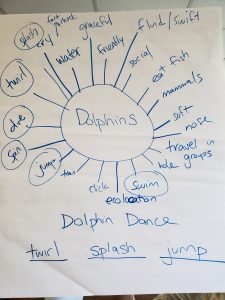 splash
cry
water
graceful
friendly
fluid/swift
social
eat fish
mammals
soft
nose
travel in
groups
hole
swim
echolocation
click
jump
spin
dive
twirl
Dolphins
Dolphin Dance
twirl splash jump